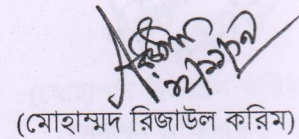 (মোহাম্মদ রিজাউল করিম)